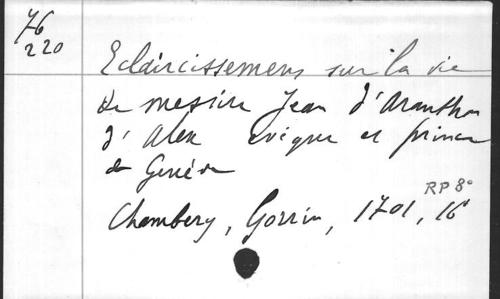 76
220
Eclaircissemens sur la vie
de messire Jean d'Aranthon
d'Alex evèque et prince
de Genève
RP 8°
Chambery, Gorrin, 1701, 16°